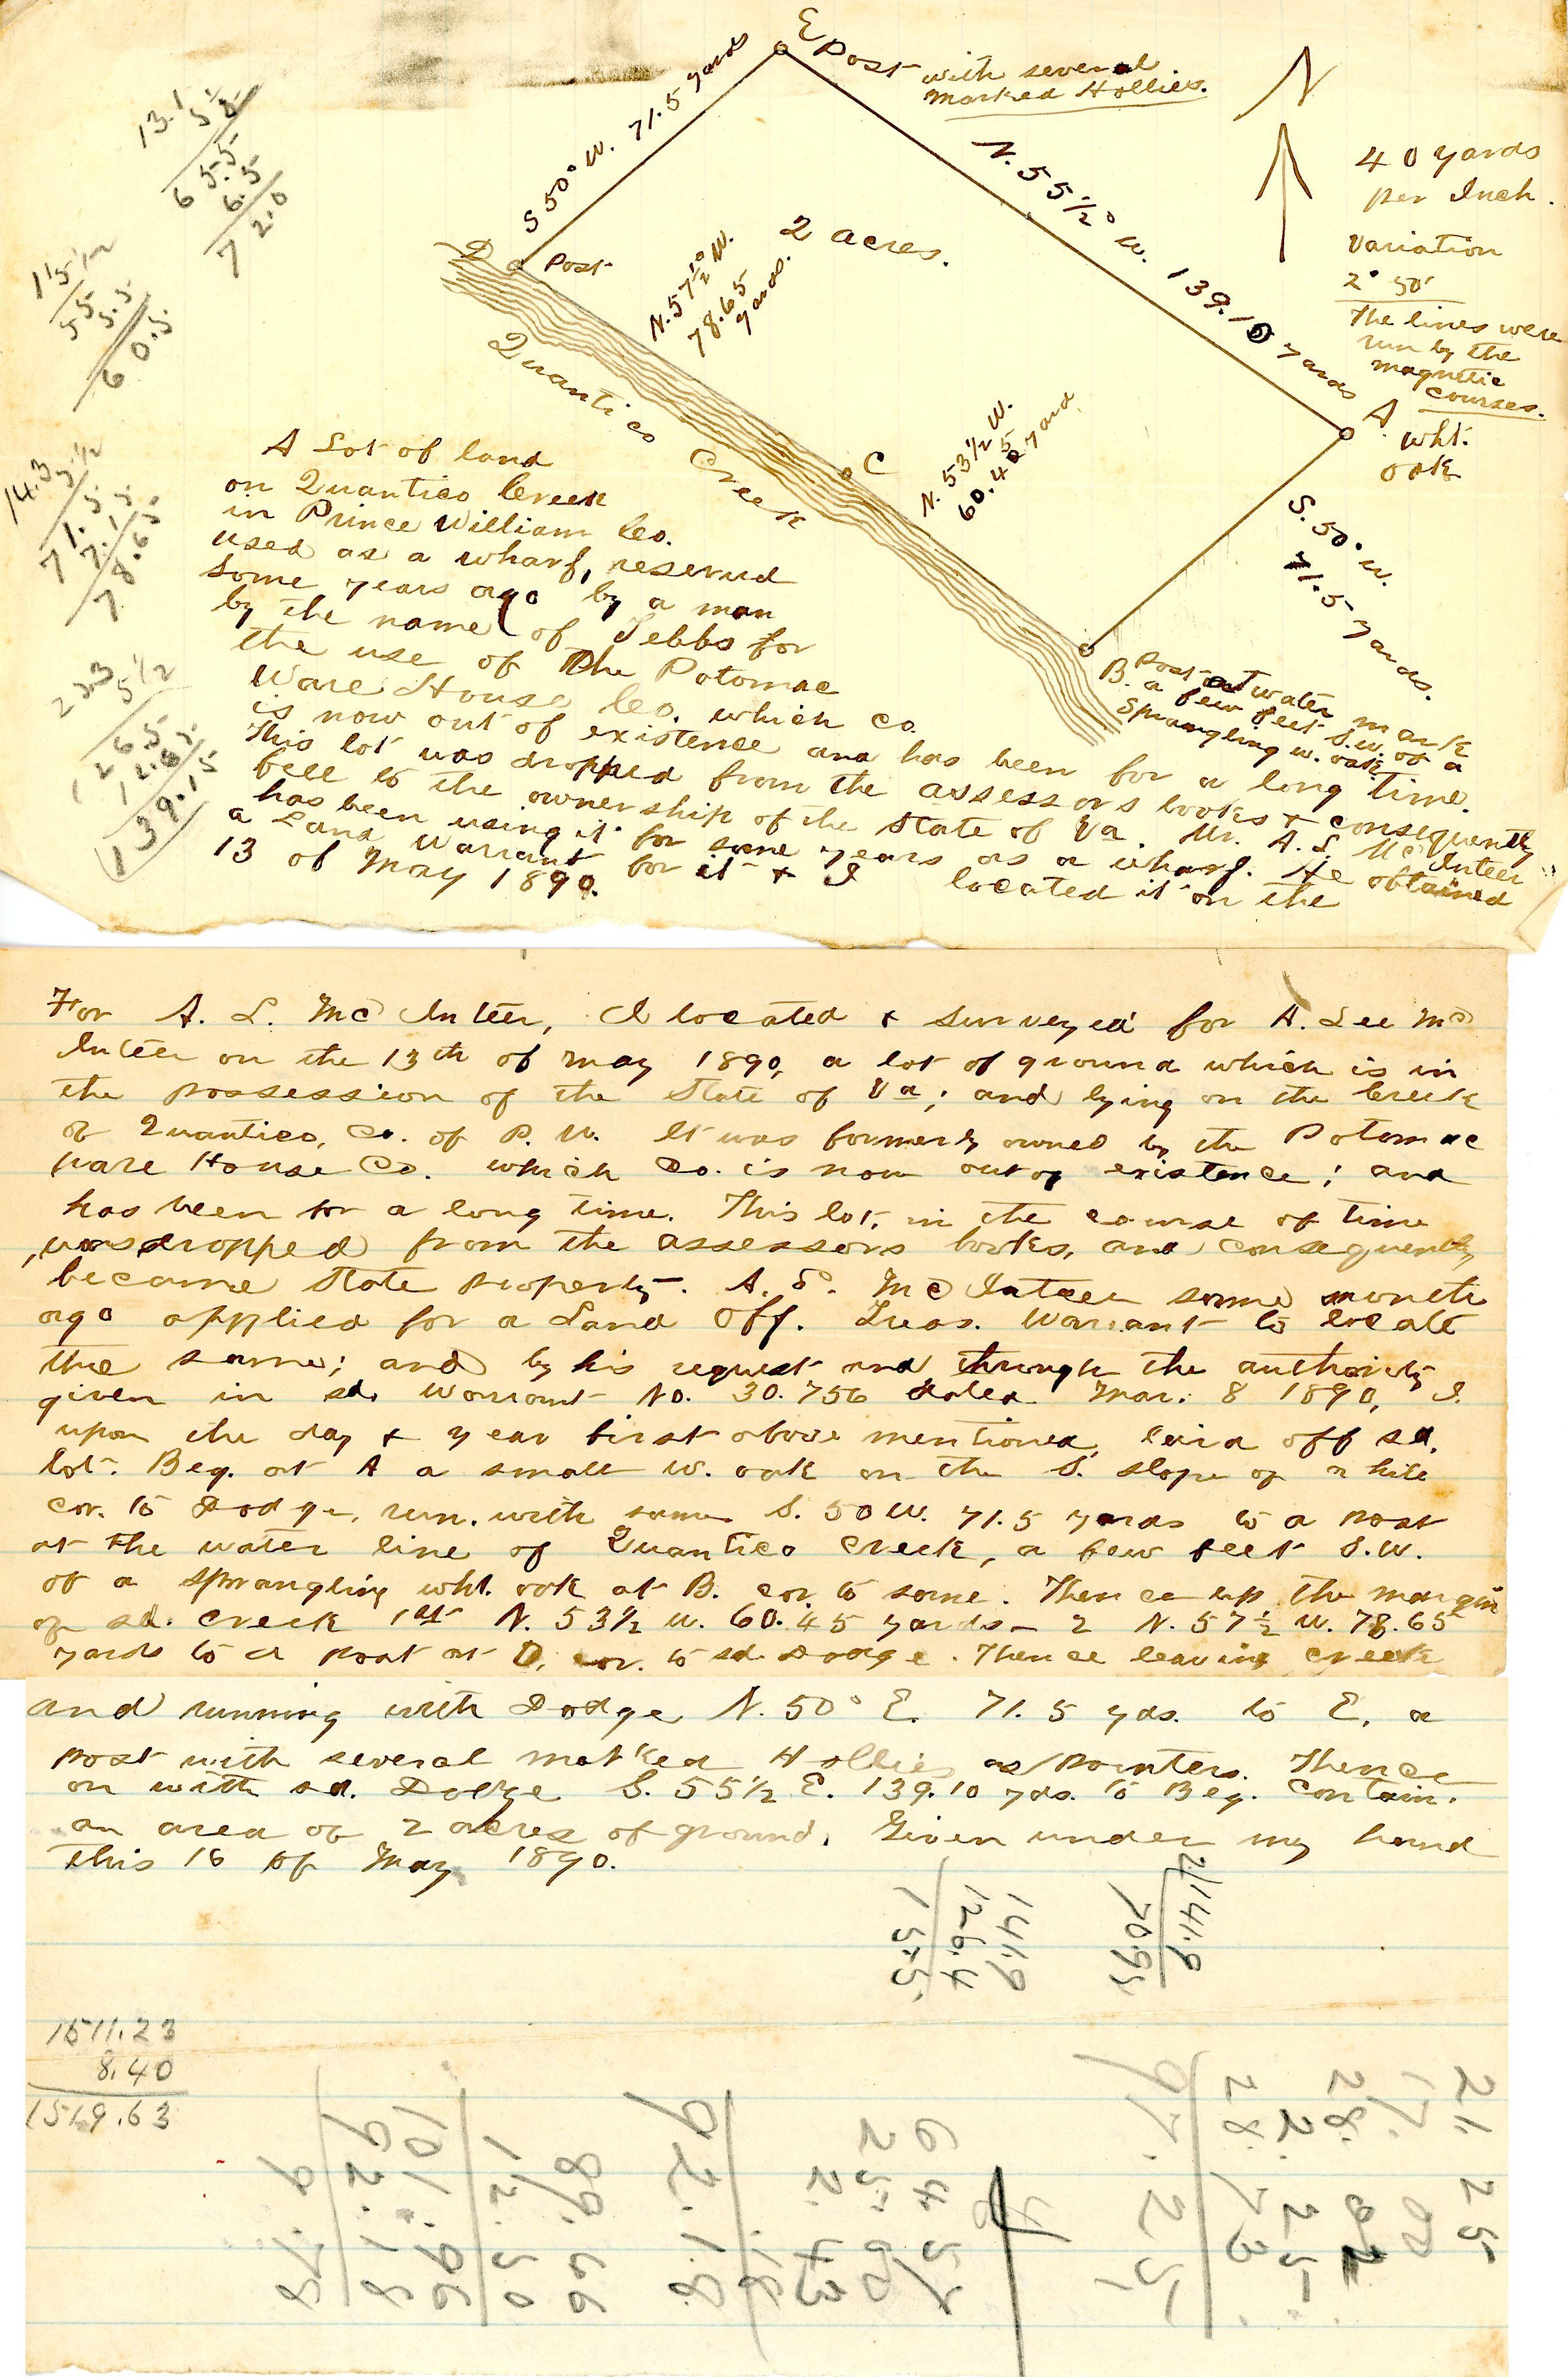 E
Post with several
marked Hollies.
N
40 yards
per Inch.
Variation
2° 50'
The lines were
run by the
magnetic
courses.
S 50° W. 71.5 yards
N. 55 1/2° W. 139.10 yards
2 acres.
D Post
N. 57 1/2° W.
78.65
yards.
Quantico Creek
C
N. 53 1/2 W.
60.45 yard
A
wht.
oak
S. 50° W.
71.5 yards.
B. Post at water mark
a few feet S.W. of a
Sprangling w. oak
13.1
5 1/2
65.5
6.5
72.0
11 5 1/2
55
5.5
60.5
14.3
5 1/2
71.5
7.15
78.65
5 1/2
126.5
12.65
139.15
A Lot of land
on Quantico Creek
in Prince William Co.
used as a wharf, reserved
some years ago by a man
by the name of Tebbs for
the use of The Potomac
Ware House Co. which co.
is now out of existence and has been for a long time.
This lot was dropped from the assessors books & consequently
fell to the ownership of the State of Va. Mr. A. L. McInteer
has been using it for some years as a wharf. He obtained
a Land Warrant for it & I located it on the
13 of May 1890.
For A. L. McInteer, I located & surveyed for A. Lee Mc
Inteer on the 13th of May 1890, a lot of ground which is in
the possession of the State of Va; and lying on the Creek
of Quantico, Co. of P. W. It was formerly owned by the Potomac
Ware House Co. which Co. is now out of existence; and
has been for a long time. This lot, in the course of time
was dropped from the assessors books, and consequently
became State property. A. L. McInteer some months
ago applied for a Land Off. Treas. Warrant to locate
the same; and by his request and through the authority
given in sd. Warrant No. 30.756 dated Mar. 8 1890, I
upon the day & year first above mentioned, laid off sd.
lot. Beg. at A a small w. oak on the S. slope of a hill
cor. to Dodge, run. with same S. 50 W. 71.5 yards to a post
at the water line of Quantico Creek, a few feet S.W.
of a sprangling wht. oak at B. cor. to same. Thence up the margin
of sd. creek 1st N. 53 1/2 W. 60.45 yards - 2 N. 57 1/2 W. 78.65
yards to a post at D, cor. to sd. Dodge. Thence leaving creek
and running with Dodge N. 50° E. 71.5 yds. to E. a
post with several marked Hollies as pointers. Thence
on with sd. Dodge S. 55 1/2 E. 139.10 yds. to Beg. contain.
an area of 2 acres of ground. Given under my hand
this 16 of May 1890.
2/141.9
70.95
141.9
126.4
15.5
1511.23
8.40
1519.63